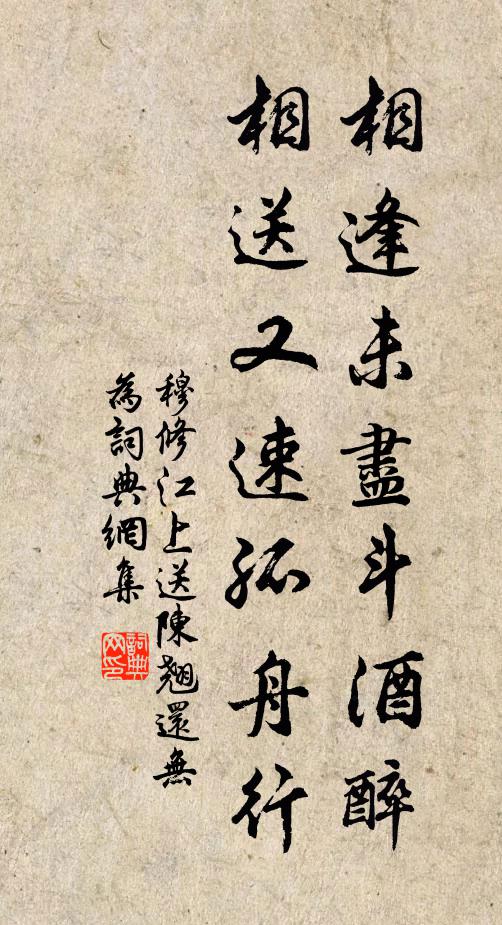 相逢未盡斗酒醉
相送又速孤舟行
穆修江上送陳翘還無
為詞典網集
詞典网印